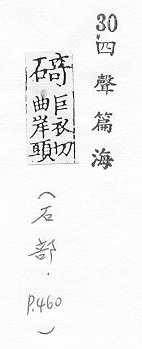 30 四聲篇海
碕
巨衣切
曲岸頭
(石部.P.460)